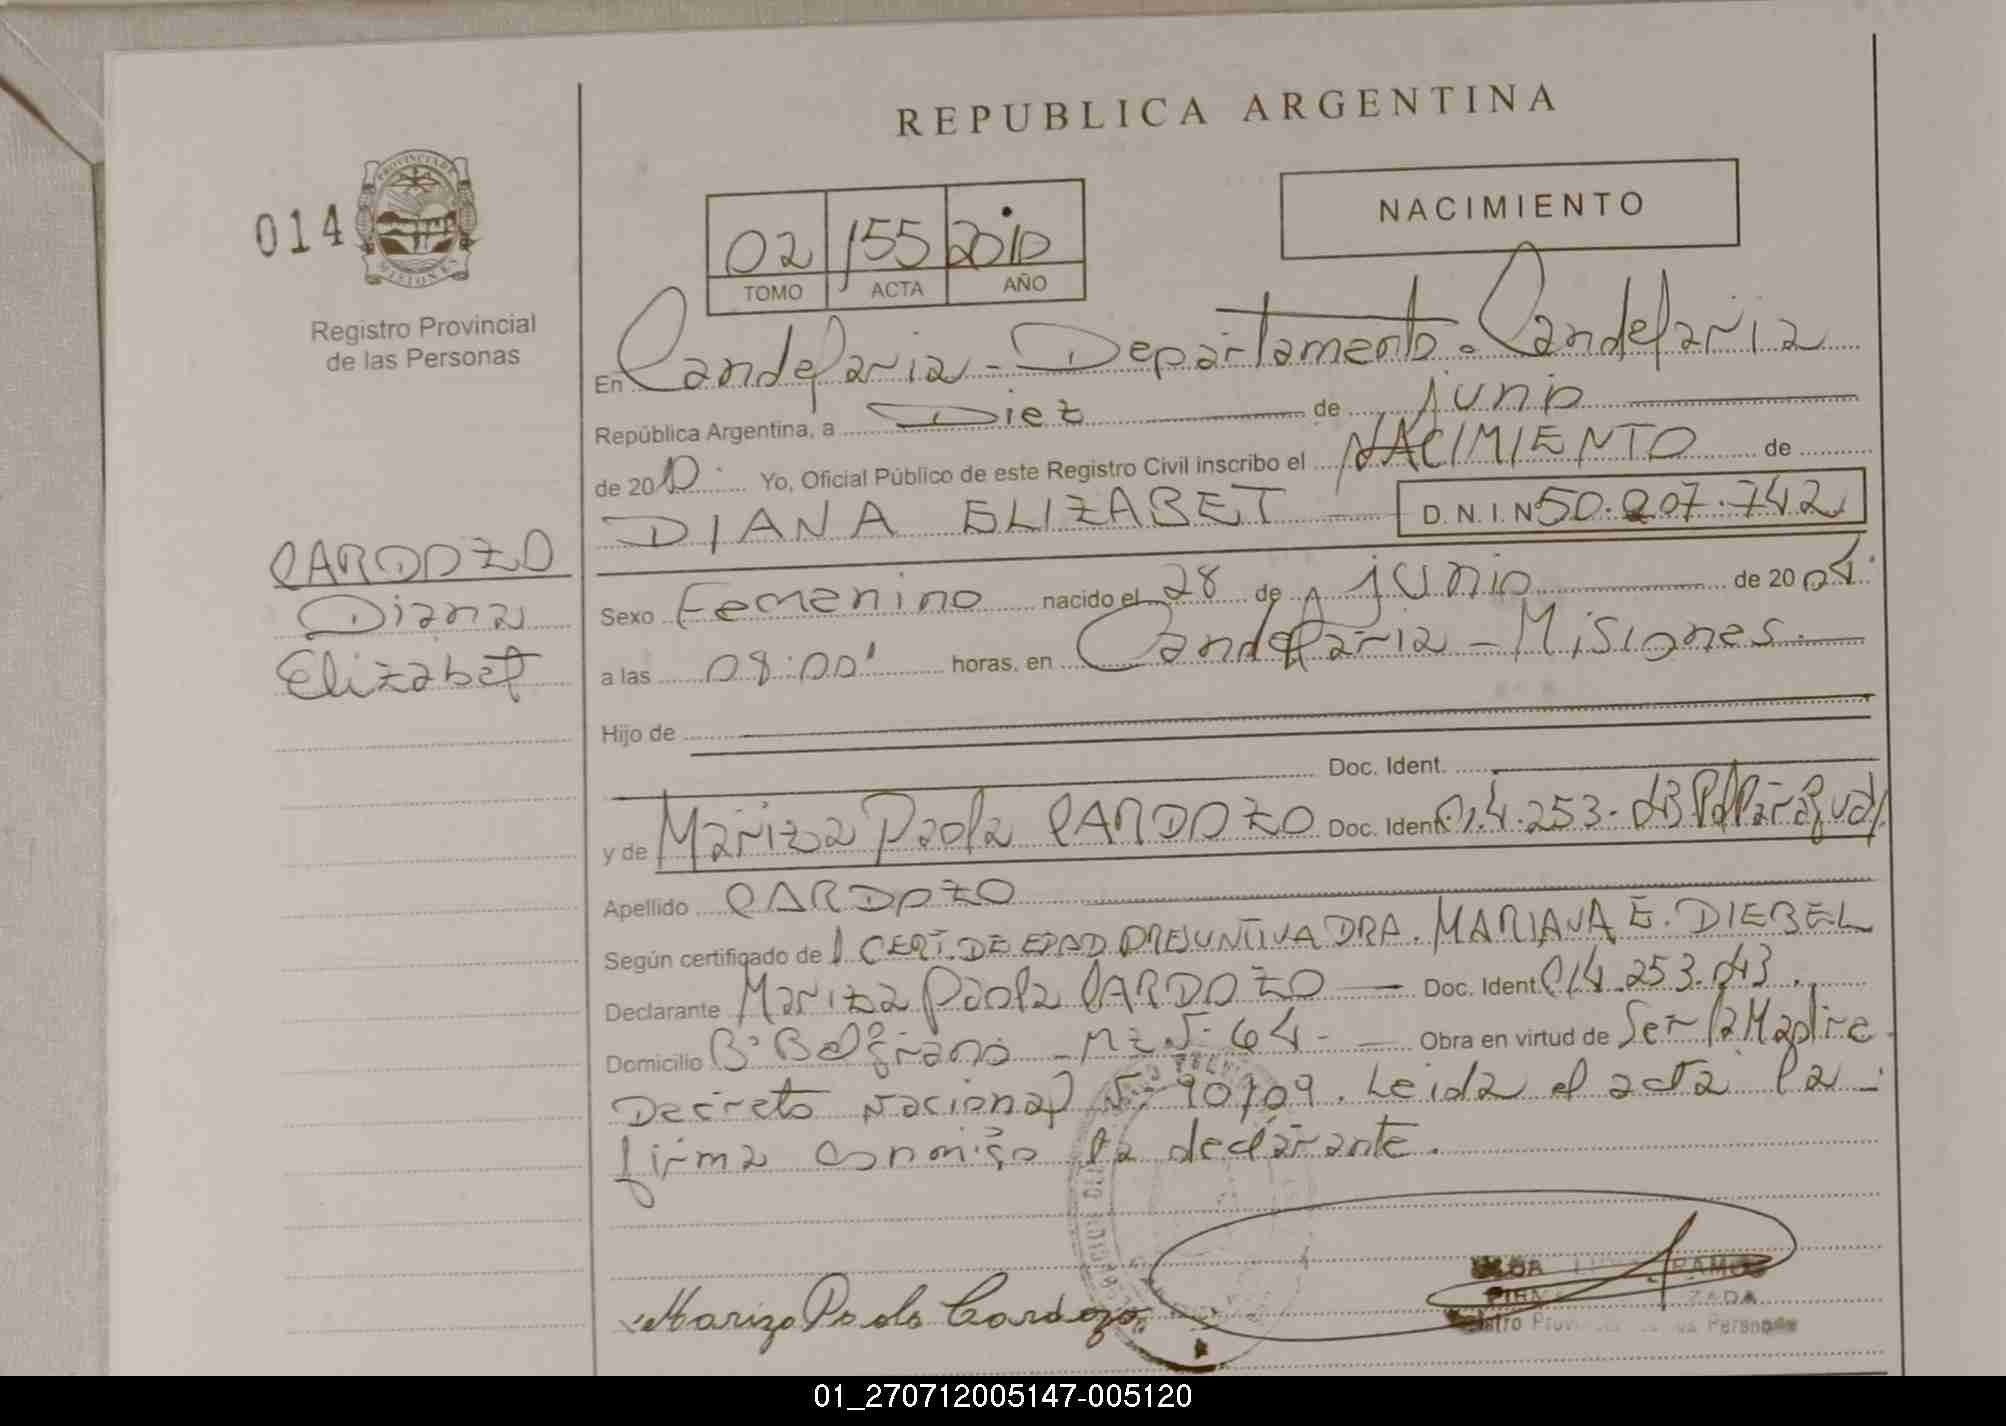 REPUBLICA ARGENTINA
NACIMIENTO
014
PROVINCIA DE
MISIONES
Registro Provincial
de las Personas
02 155 2010
TOMO ACTA AÑO
En Candelaria - Departamento. Candelaria
República Argentina, a Diez de junio
de 2010. Yo, Oficial Público de este Registro Civil inscribo el NACIMIENTO de
DIANA ELIZABET D.N.I.N 50.207.742
CARDOZO
Diana
Elizabet
Sexo Femenino nacido el 28 de junio de 2004.
a las 08:00' horas, en Candelaria - Misiones.
Hijo de
Doc. Ident.
y de Mariza Paola CARDOZO Doc. Ident. Paraguay
Apellido CARDOZO
Según certificado de CERT. DE EDAD PRESUNTIVA DRA. MARIANA E. DIEBEL
Declarante Mariza Paola CARDOZO - Doc. Ident.
Domicilio B° Belgrano - Mz 64 - Obra en virtud de Ser la Madre.
Decreto Nacional N° 90/09. Leida el acta la
firma conmigo la declarante.
Mariza Paola Cardozo
RAMOS
01_270712005147-005120